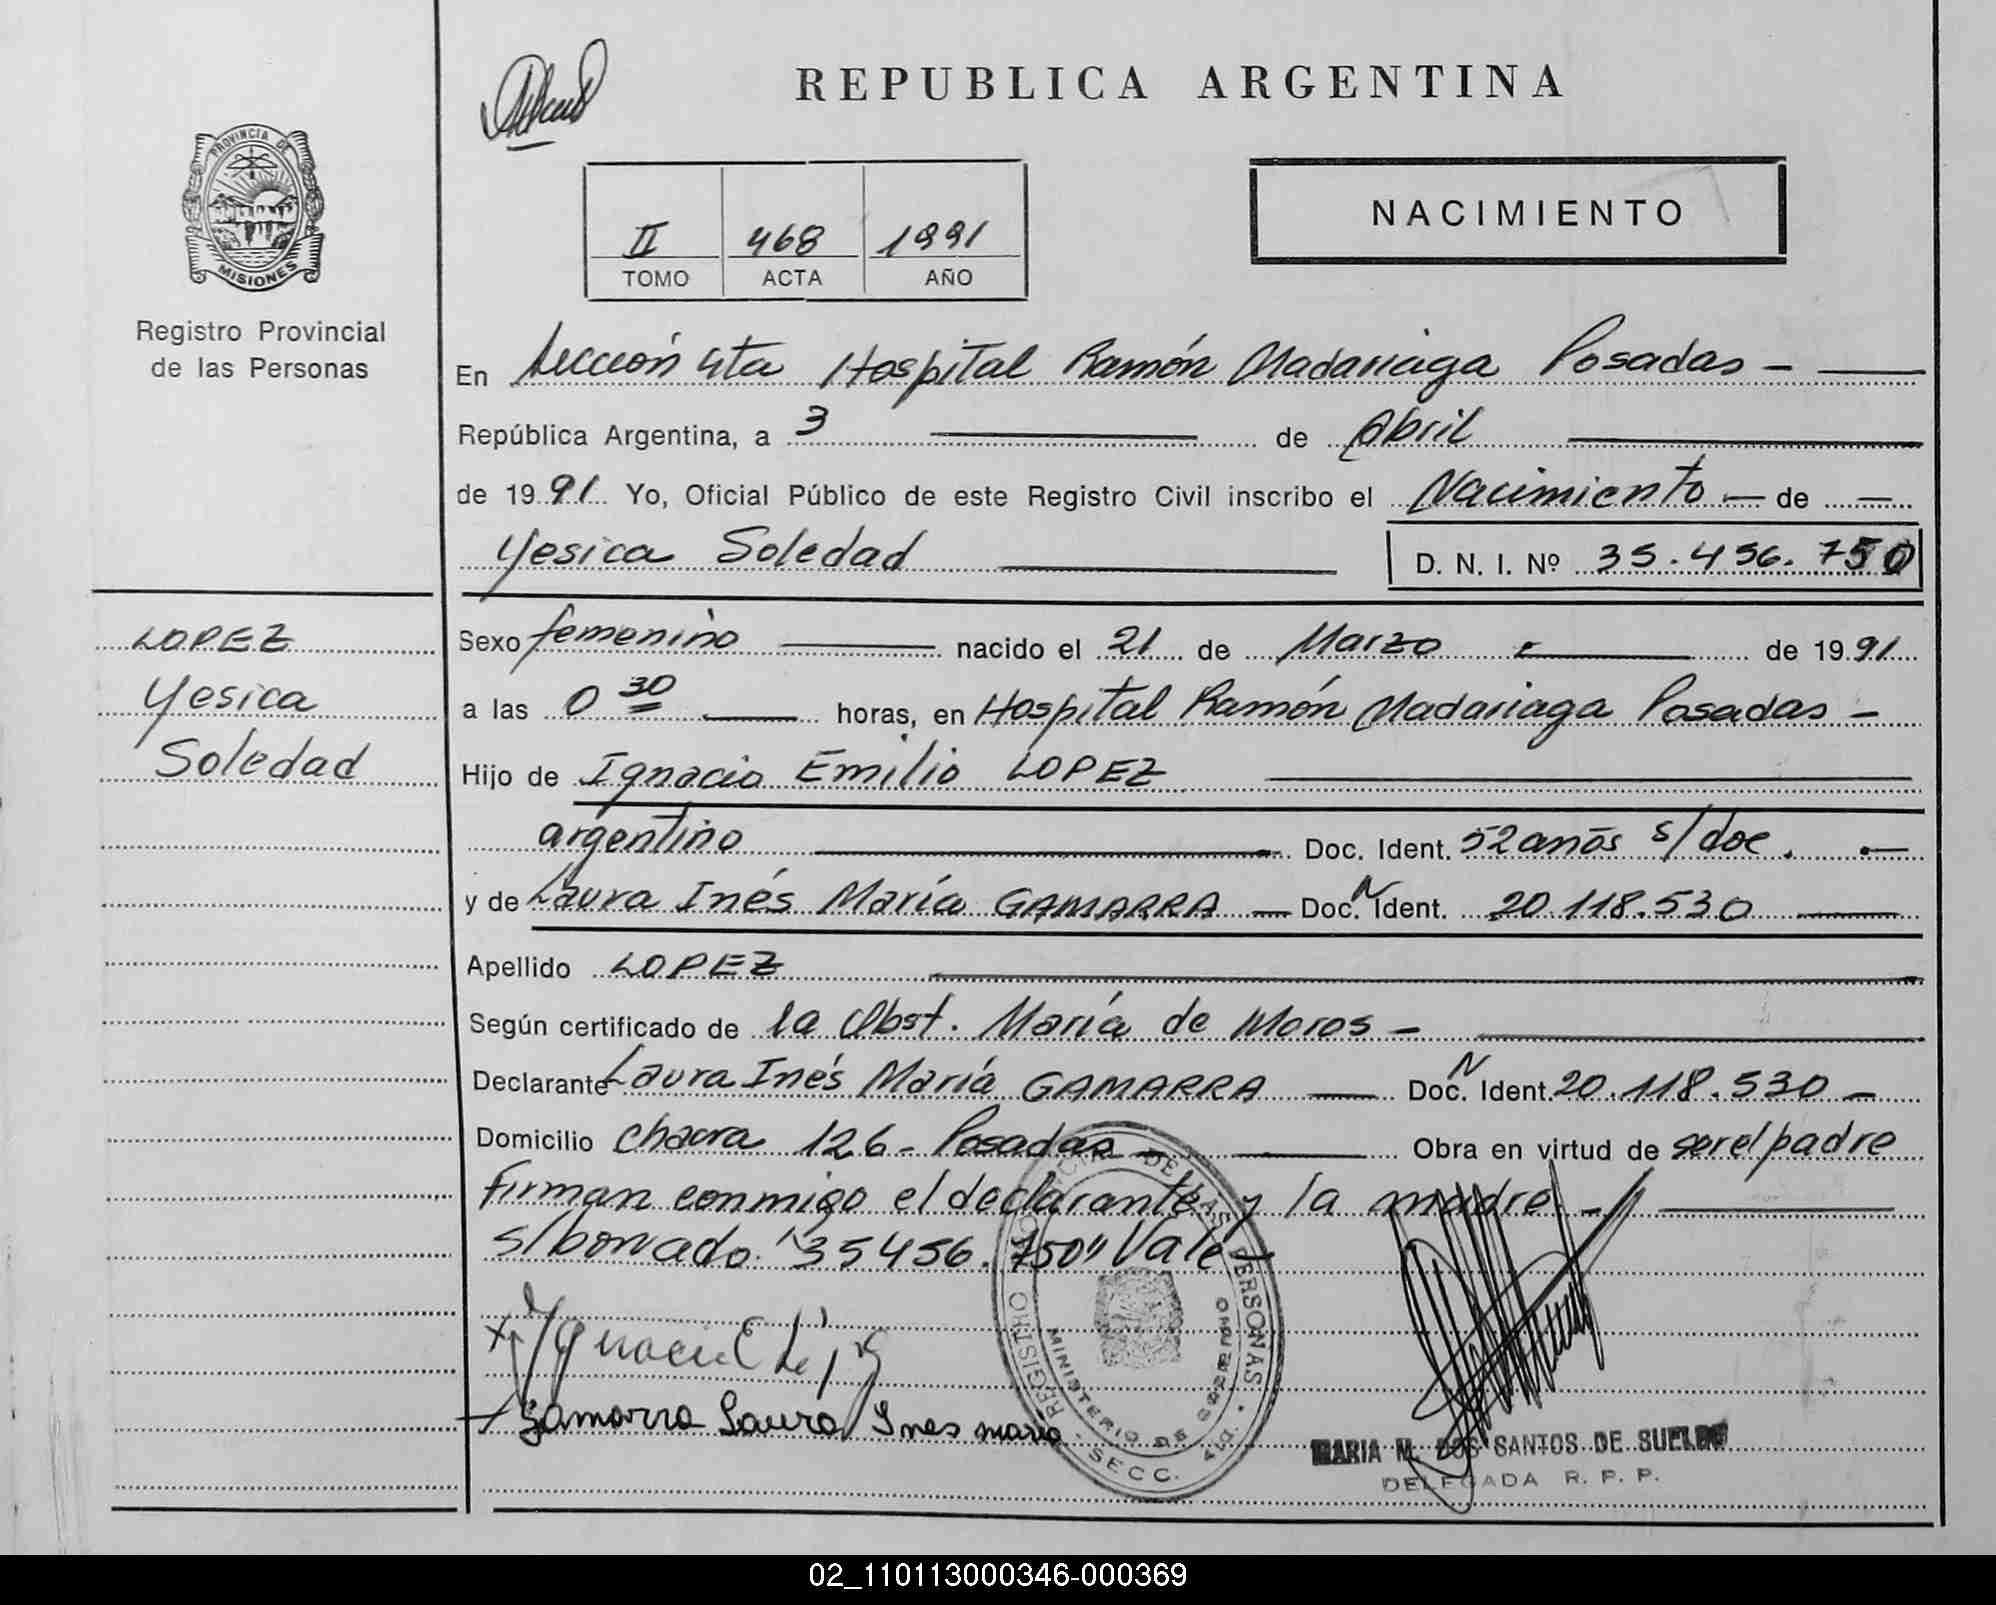 REPUBLICA ARGENTINA
PROVINCIA DE
MISIONES
Registro Provincial
de las Personas
II 468 1991
TOMO ACTA AÑO
NACIMIENTO
En Sección 4ta Hospital Ramón Madariaga Posadas -
República Argentina, a 3 de Abril
de 1991 Yo, Oficial Público de este Registro Civil inscribo el Nacimiento - de
Yesica Soledad
D. N. I. Nº 35.456.750
LOPEZ
Yesica
Soledad
Sexo femenino nacido el 21 de Marzo de 1991
a las 0 30 horas, en Hospital Ramón Madariaga Posadas -
Hijo de Ignacio Emilio LOPEZ
argentino Doc. Ident. 52 años s/doc.
y de Laura Inés María GAMARRA - Doc. N Ident. 20.118.530
Apellido LOPEZ
Según certificado de la Obst. María de Moros -
Declarante Laura Inés María GAMARRA - Doc. N Ident. 20.118.530 -
Domicilio Chacra 126 - Posadas - Obra en virtud de ser el padre
Firman conmigo el declarante y la madre. -
s/borrado. "35456.750" Vale -
x Ignacio E López
Gamarra Laura Ines maria
REGISTRO DE LAS PERSONAS
MINISTERIO DE GOBIERNO
SECC. 4ta
MARIA M. DOS SANTOS DE SUELDO
DELEGADA R. P. P.
02_110113000346-000369